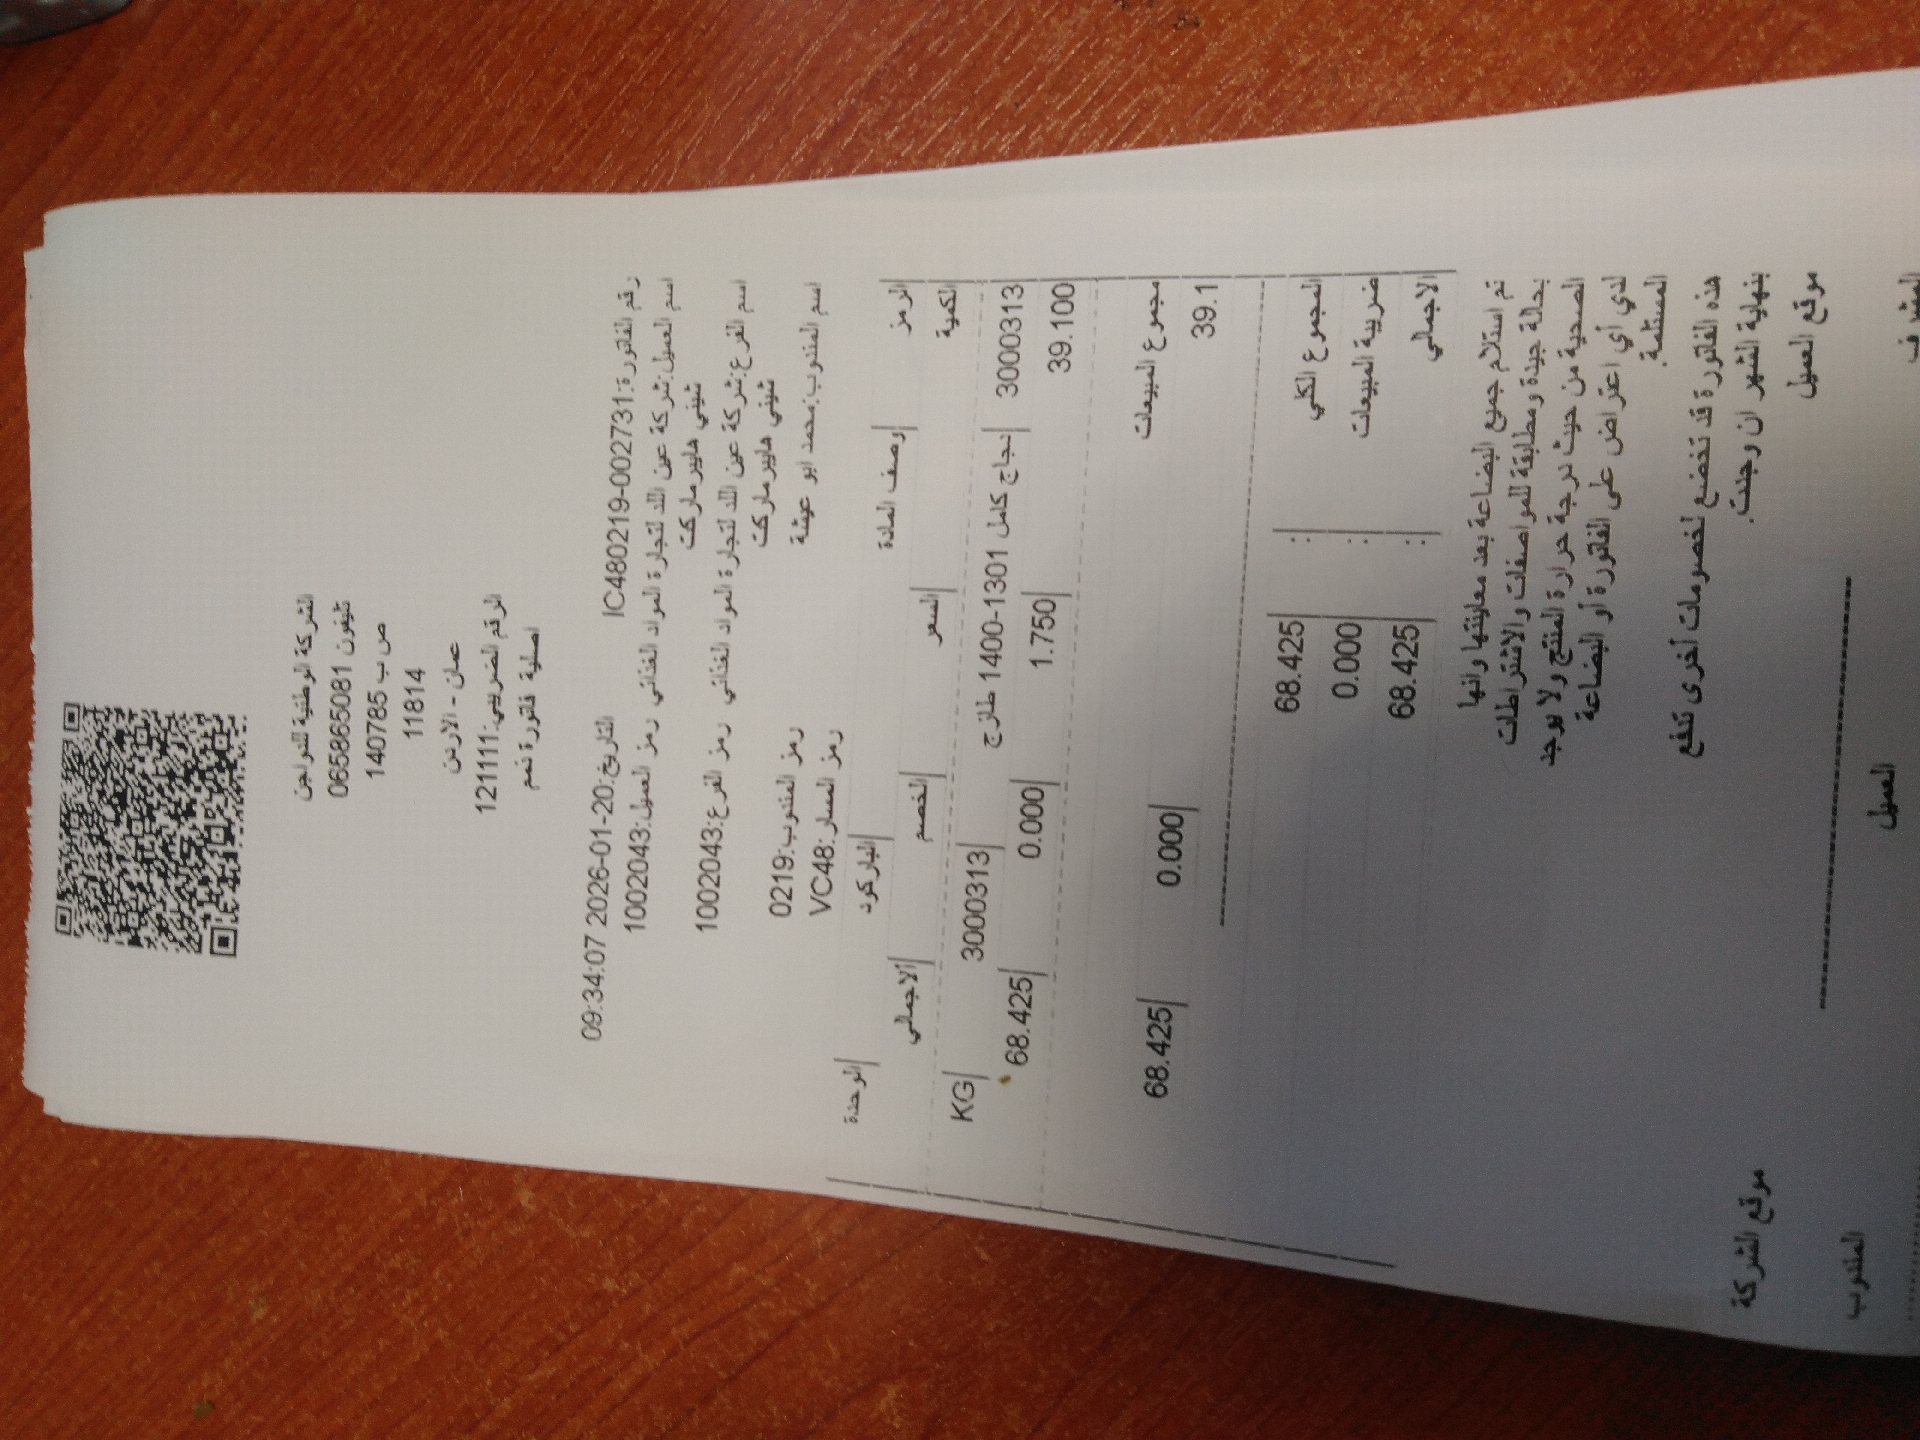 الشركة الوطنية للدواجن
تليفون 065865081
ص ب 140785
11814
عمان - الاردن
الرقم الضريبي:1211111
اصلية فاتورة ذمم
رقم الفاتورة:IC480219-002731 التاريخ:20-01-2026 09:34:07
اسم العميل:شركة عين اللد لتجارة المواد الغذائي رمز العميل:1002043
ثيني هايبر ماركت
اسم الفرع:شركة عين اللد لتجارة المواد الغذائي رمز الفرع:1002043
ثيني هايبر ماركت
اسم المندوب:محمد ابو عيشة رمز المندوب:0219
رمز المسار:VC48
الرمز وصف المادة الباركود الوحدة
الكمية السعر الخصم الاجمالي
3000313 دجاج كامل 1301-1400 طازج 3000313 KG
39.100 1.750 0.000 68.425
مجموع المبيعات
39.1 0.000 68.425
المجموع الكلي : 68.425
ضريبة المبيعات : 0.000
الاجمالي : 68.425
تم استلام جميع البضاعة بعد معاينتها وانها
بحالة جيدة ومطابقة للمواصفات والاشتراطات
الصحية من حيث درجة حرارة المنتج ولا يوجد
لدي أي اعتراض على الفاتورة أو البضاعة
المستلمة.
هذه الفاتورة قد تخضع لخصومات أخرى تدفع
بنهاية الشهر ان وجدت.
موقع العميل موقع الشركة
العميل المندوب
المشرف